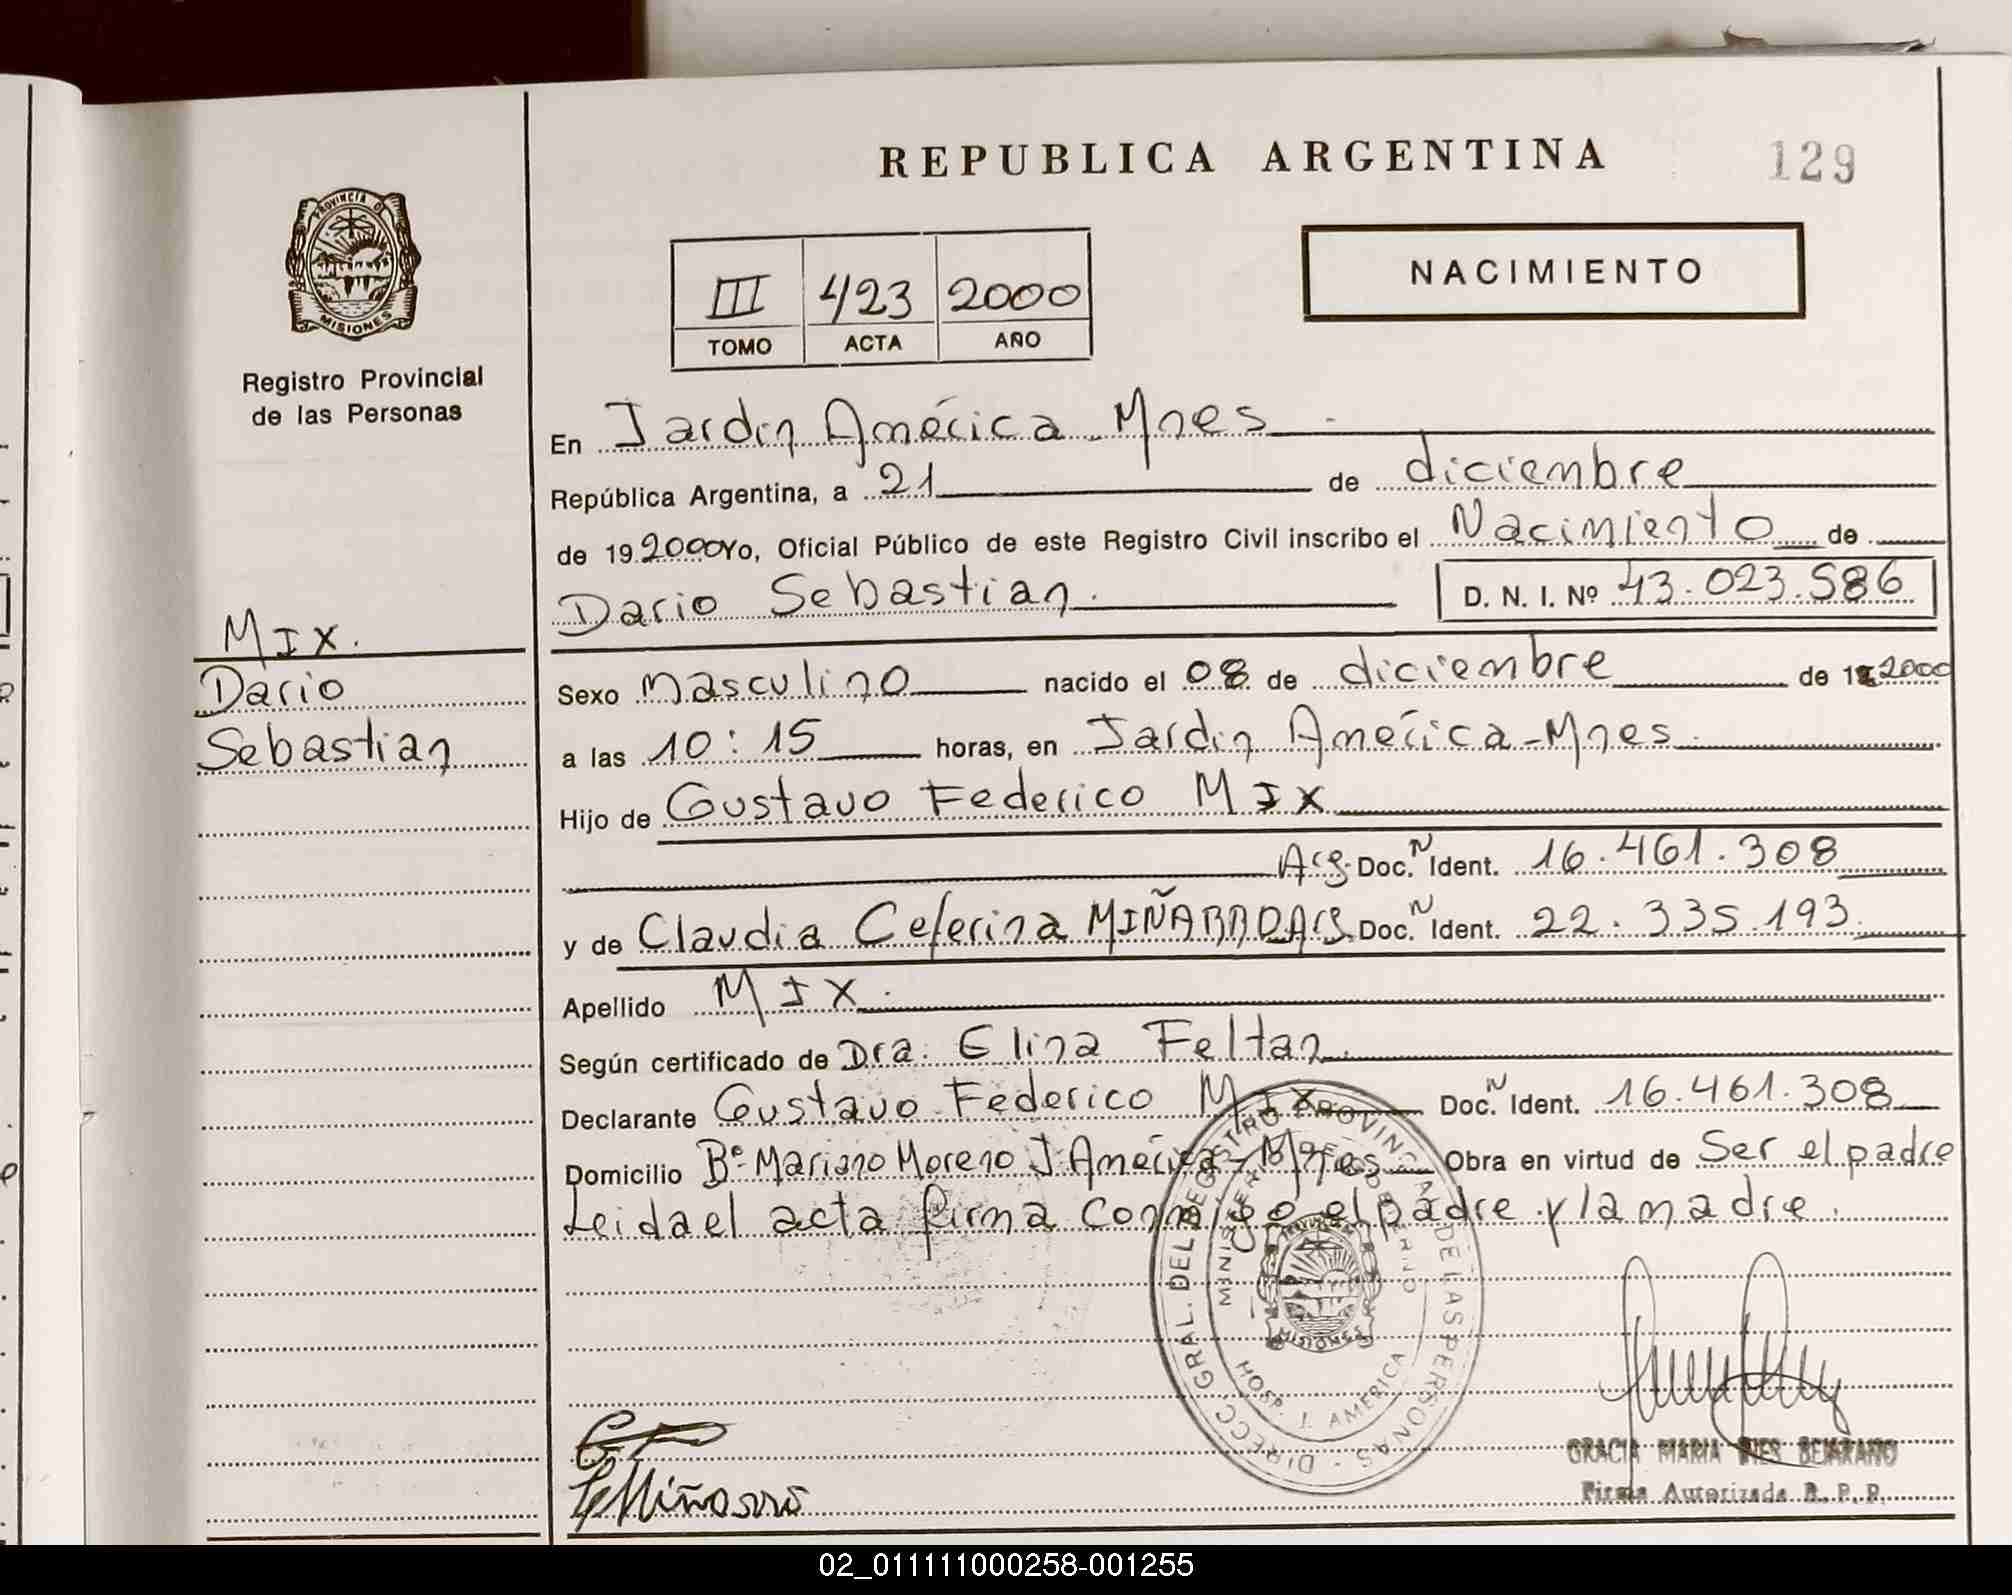 REPUBLICA ARGENTINA
129
PROVINCIA DE
MISIONES
Registro Provincial
de las Personas
III 423 2000
TOMO ACTA AÑO
NACIMIENTO
En Jardin América - Mnes
República Argentina, a 21 de diciembre
de 19 2000 Yo, Oficial Público de este Registro Civil inscribo el Nacimiento de
Dario Sebastian. D. N. I. Nº 43.023.586
MIX.
Dario
Sebastian
Sexo Masculino nacido el 08 de diciembre de 19 2000
a las 10:15 horas, en Jardin América - Mnes.
Hijo de Gustavo Federico MIX
Arg. Doc.N Ident. 16.461.308
y de Claudia Ceferina MIÑARRO Arg. Doc.N Ident. 22.335.193
Apellido MIX.
Según certificado de Dra. Elina Feltan.
Declarante Gustavo Federico MIX Doc.N Ident. 16.461.308
Domicilio Bº Mariano Moreno J. América - Mnes Obra en virtud de Ser el padre
Leida el acta firma conmigo el padre y la madre.
DIRECC. GRAL. DEL REGISTRO PROVINCIAL DE LAS PERSONAS
MINISTERIO DE GOBIERNO
MISIONES
HOSP. J. AMERICA
Miñarro
GRACIA MARIA INES BEJARANO
Firma Autorizada R. P. P.
02_011111000258-001255